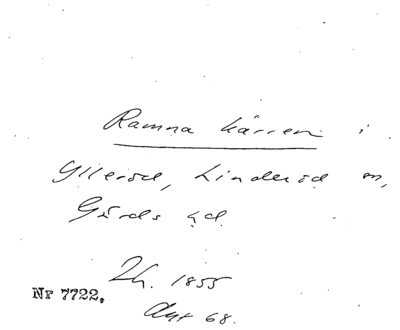 Ramna kärren i
Yllerod, Linderöd sn,
Gärds hd.
Lh. 1855
Nr 7722.
Akt 68.